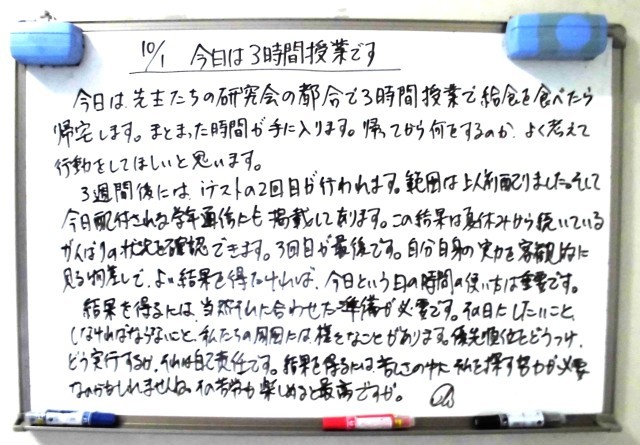 10/1 今日は3時間授業です
今日は、先生たちの研究会の都合で3時間授業で給食を食べたら
帰宅します。まとまった時間が手に入ります。帰ってから何をするのか、よく考えて
行動をしてほしいと思います。
3週間後には、テストの2回目が行われます。範囲は以前配りました。そして
今日配付される学年通信にも掲載してあります。この結果は夏休みから続いている
がんばりの状況を確認できます。3回目が最後です。自分自身の実力を客観的に
見る物差しで、よい結果を得たければ、今日という日の時間の使い方は重要です。
結果を得るには、当然それに合わせた準備が必要です。その日にしたいこと、
しなければならないこと、私たちの周囲には様々なことがあります。優先順位をどうつけ、
どう実行するか、それは自己責任です。結果を得るには苦しさの中に それを探す努力が必要
なのかもしれませんね。その苦労も楽しめると最高ですが。